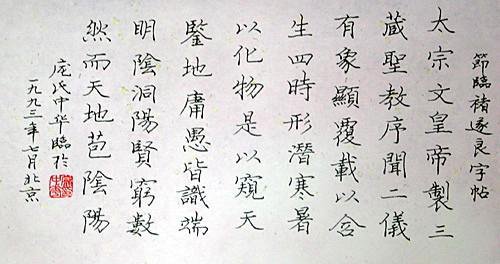 節臨褚遂良字帖
太宗文皇帝製三
藏聖教序聞二儀
有象顯覆載以含
生四時形潛寒暑
以化物是以窺天
鑒地庸愚皆識端
明陰洞陽賢窮數
然而天地苞陰陽
庞氏中华臨於
一九九三年七月北京